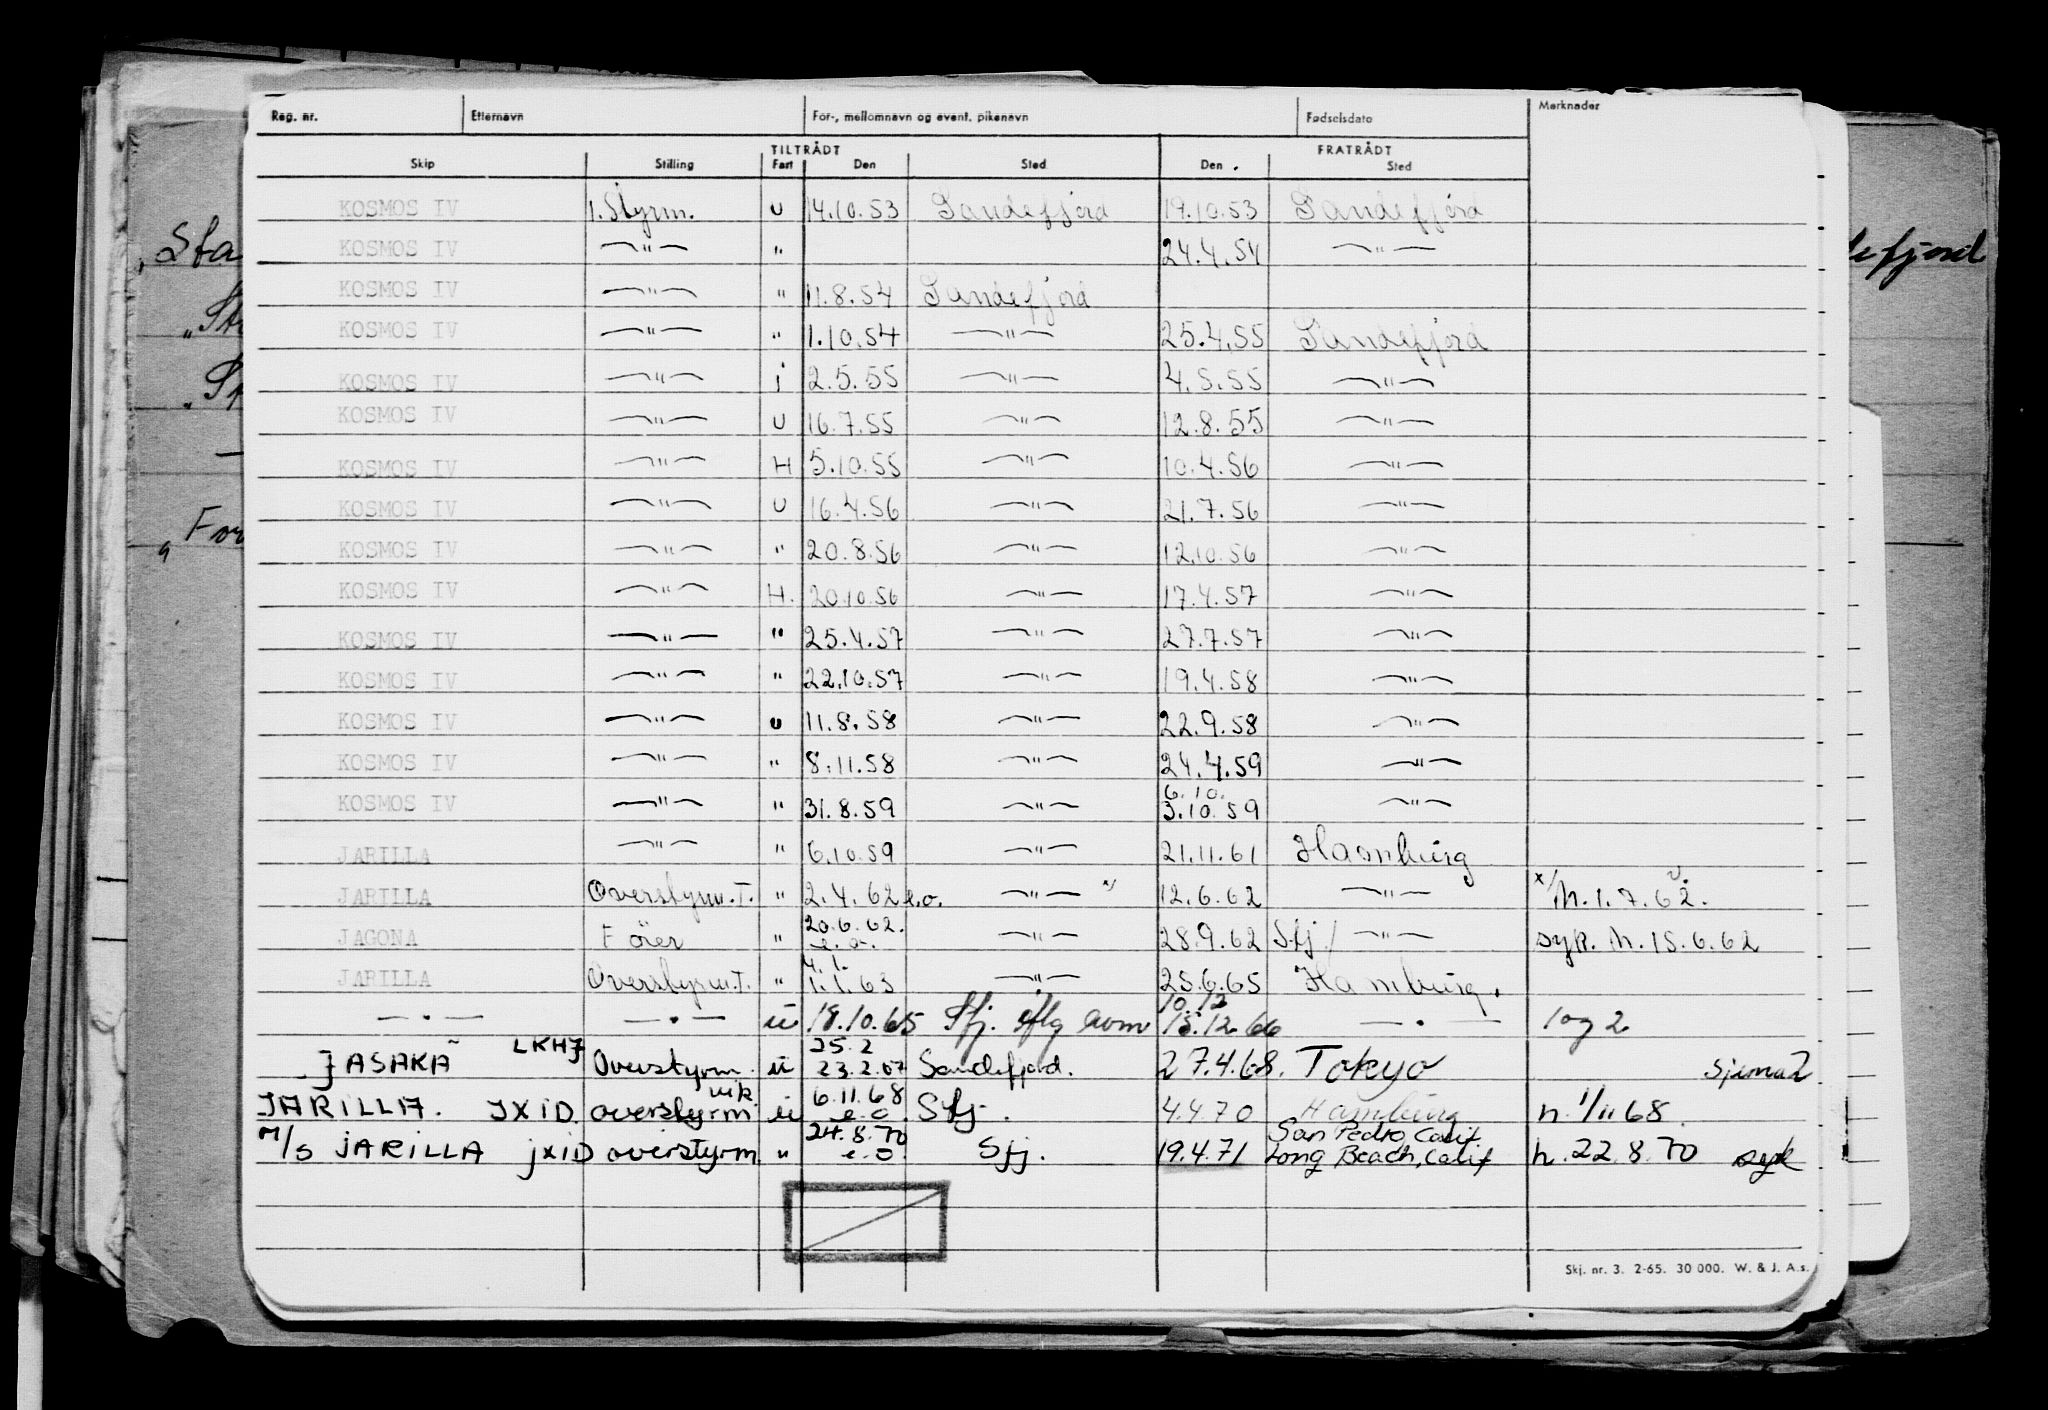 Reg. nr. Etternavn For-, mellomnavn og event. pikenavn Fødselsdato Merknader
TILTRÅDT FRATRÅDT
Skip Stilling Fart Den Sted Den . Sted
KOSMOS IV 1. Styrm. U 14.10.53 Sandefjord 19.10.53 Sandefjord
KOSMOS IV —"— " 24.4.54 —"—
KOSMOS IV —"— " 11.8.54 Sandefjord
KOSMOS IV —"— " 1.10.54 —"— 25.4.55 Sandefjord
KOSMOS IV —"— i 2.5.55 —"— 4.5.55 —"—
KOSMOS IV —"— U 16.7.55 —"— 12.8.55 —"—
KOSMOS IV —"— H 5.10.55 —"— 10.4.56 —"—
KOSMOS IV —"— U 16.4.56 —"— 21.7.56 —"—
KOSMOS IV —"— " 20.8.56 —"— 12.10.56 —"—
KOSMOS IV —"— H. 20.10.56 —"— 17.4.57 —"—
KOSMOS IV —"— " 25.4.57 —"— 27.7.57 —"—
KOSMOS IV —"— " 22.10.57 —"— 19.4.58 —"—
KOSMOS IV —"— U 11.8.58 —"— 22.9.58 —"—
KOSMOS IV —"— " 8.11.58 —"— 24.4.59 —"—
6.10.
KOSMOS IV —"— " 31.8.59 —"— 3.10.59 —"—
JARILLA —"— " 6.10.59 —"— 21.11.61 Hamburg
JARILLA Overstyrm.T. " 2.4.62 e.o. —"— x/ 12.6.62 —"— x/ h.1.7.62.
20.6.62.
JAGONA Fører " e.o. —"— 28.9.62 Sfj/ —"— syk. h.15.6.62
4.1.
JARILLA Overstyrm.T. " 1.1.63 —"— 25.6.65 Hamburg.
10.12
—"— —"— ü 18.10.65 Sfj. iflg avm 15.12.66 —"— log 2
25.2
JASAKA LKHJ Overstyrm. ü 23.2.67 Sandefjord. 27.4.68. Tokyo sjema 2
vik 6.11.68
JARILLA. JXID overstyrm. ü e.o Sfj. 4.4.70 Hamburg h. 1/11 68
24.8.70 San Pedro, Calif.
M/S JARILLA JXID overstyrm. " e.o Sfj. 19.4.71 Long Beach, Calif h.22.8.70 syk
Skj. nr. 3. 2-65. 30 000. W. & J. A.s.